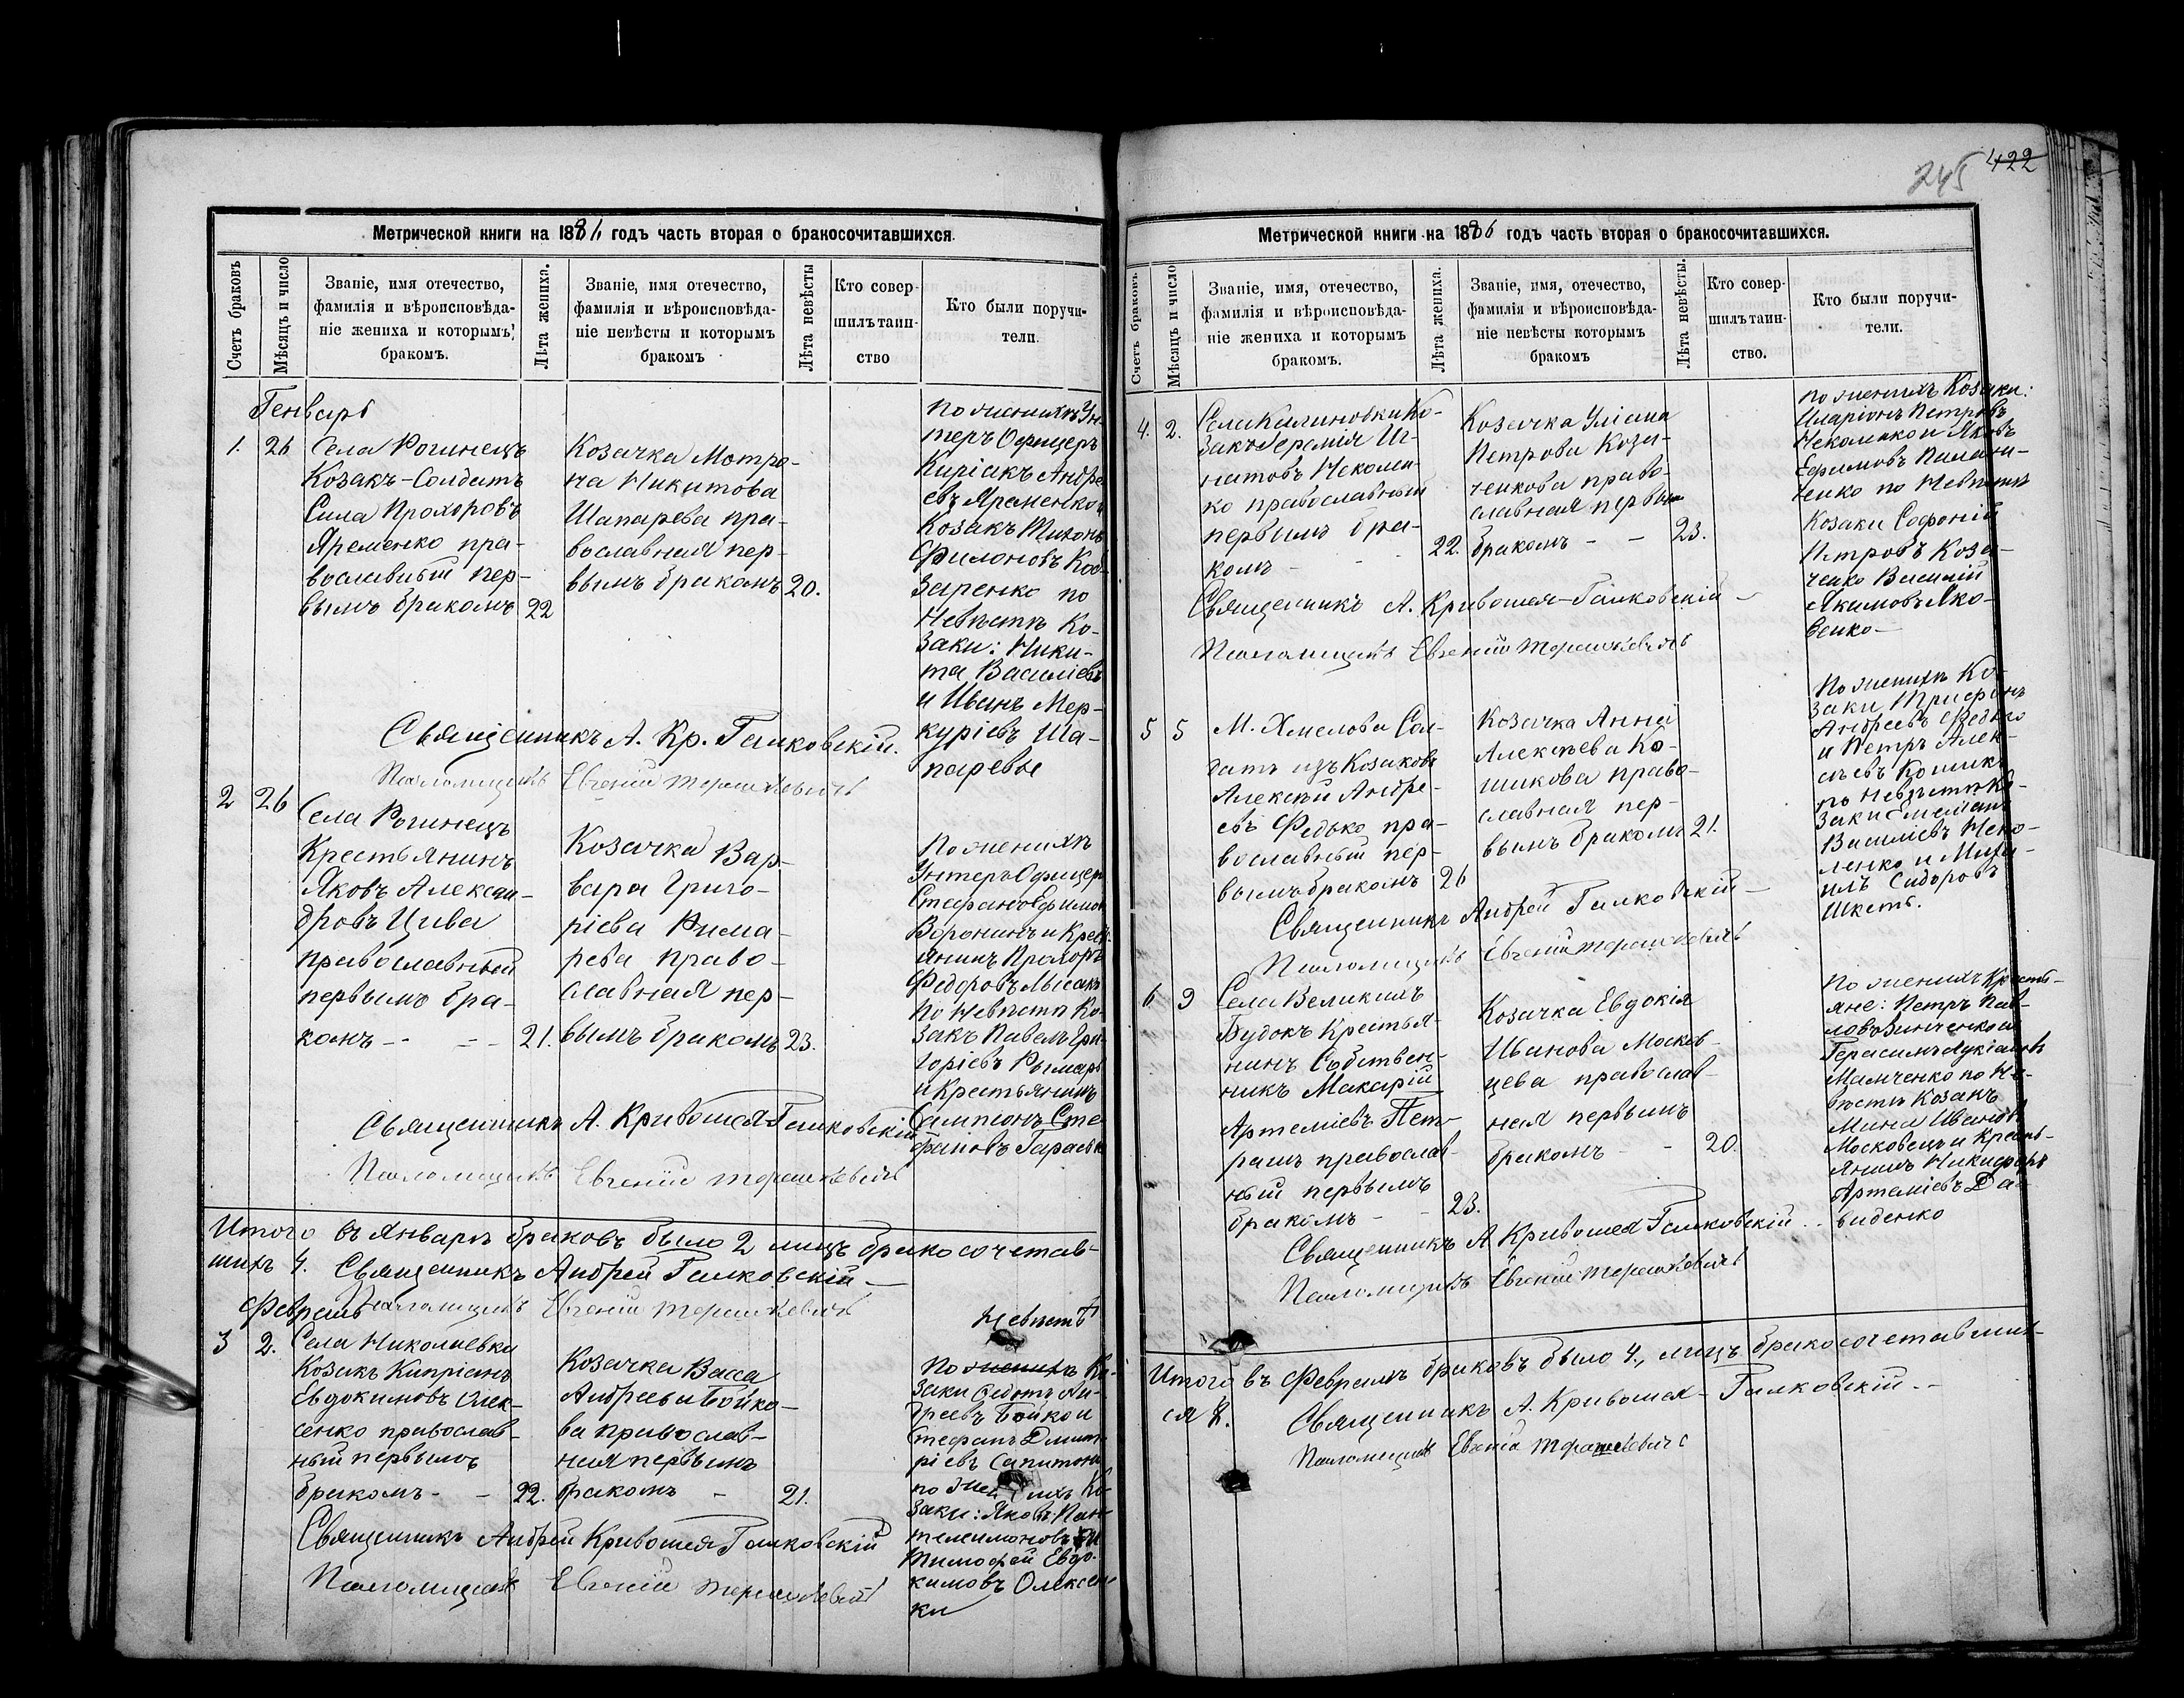 Метрической книги на 1886 годъ часть вторая о бракосочитавшихся.
Счетъ браковъ
Мѣсяцъ и число
Званіе, имя отечество,
фамилія и вѣроисповѣда-
ніе жениха и которымъ
бракомъ.
Лѣта жениха.
Званіе, имя отечество,
фамилія и вѣроисповѣда-
ніе невѣсты и которымъ
бракомъ
Лѣта невѣсты
Кто совер-
шилъ таин-
ство
Кто были поручи-
тели.
Генварь
1. 26
Села Рогинецъ
Козакъ-Солдатъ
Сила Прохоровъ
Яременко пра-
вославный пер-
вымъ бракомъ 22
Козачка Мотро-
на Никитова
Шапарева пра-
вославная пер-
вымъ бракомъ 20.
По женихѣ Ун-
теръ Офицеръ
Киріакъ Андре
евъ Яременко и
Козакъ Тихонъ
Филоновъ Коб-
заренко по
Невѣстѣ Ко-
заки: Ники-
та Василіевъ
и Иванъ Мер-
куріевъ Ша-
паревы
Священникъ А. Кр. Галковскій.
Псаломщикъ Евгеній Терешкевичъ
2 26
Села Рогинецъ
Крестьянинъ
Яковъ Алексан-
дровъ Цива
православный
первымъ бра-
комъ - - 21.
Козачка Вар-
вара Григо-
ріева Рима-
рева право-
славная пер-
вымъ бракомъ 23.
По женихѣ
Унтеръ Офицеръ
Стефанъ Ефимов
Воронинъ и Кресть
янинъ Прохоръ
Федоровъ Лысакъ
По Невѣстѣ Ко-
закъ Павелъ Гри-
горіевъ Рымарь
и Крестьянинъ
Сампсонъ Сте-
фановъ Тарасен
Священникъ А. Кривошея-Галковскій
Псаломщикъ Евгеній Терешкевичъ
Итого въ Январѣ браковъ было 2 лицъ бракосочетав-
шихъ 4. Священникъ Андрей Галковскій
Псаломщикъ Евгеній Терешкевичъ
Февраль
3 2.
Села Николаевки
Козакъ Кипріанъ
Евдокимовъ Олек-
сенко православ-
ный первымъ
бракомъ - - 22.
Козачка Васса
Андреева Бойко-
ва православ-
ная первымъ
бракомъ - 21.
Невѣстѣ
По женихѣ Ко-
заки Федотъ Ан-
дреевъ Бойко и
Стефанъ Дмит-
ріевъ Сапитонъ
по Же нихѣ Ко-
заки: Яковъ Пан-
телеимоновъ и
Тимофей Евдо-
кимовъ Олексен-
ки
Священникъ Андрей Кривошея Галковскій
Псаломщикъ Евгеній Терешкевичъ
245 422
Метрической книги на 1886 годъ часть вторая о бракосочитавшихся.
Счетъ браковъ.
Мѣсяцъ и число
Званіе, имя, отечество,
фамилія и вѣроисповѣда-
ніе жениха и которымъ
бракомъ.
Лѣта жениха.
Званіе, имя, отечество,
фамилія и вѣроисповѣда-
ніе невѣсты которымъ
бракомъ
Лѣта невѣсты.
Кто совер-
шилъ таин-
ство.
Кто были поручи-
тели.
4. 2.
Села Калиновки Ко-
закъ Іеремія Иг-
натовъ Неколен-
ко православный
первымъ бра-
комъ - - 22.
Козачка Уліана
Петрова Коза-
ченкова право-
славная первым
бракомъ - - 23.
по женихѣ Козаки:
Иларіонъ Петровъ
Неколенко и Яковъ
Ефимовъ Пилипи-
ченко по Невѣстѣ
Козаки Софоній
Петровъ Коза-
ченко Василій
Якимовъ Яко-
венко
Священникъ А. Кривошея-Галковскій
Псаломщикъ Евгеній Терешкевичъ
5 5
М. Хмелова Сол-
датъ изъ Козаковъ
Алексѣй Андре-
евъ Федько пра-
вославный пер-
вымъ бракомъ 26
Козачка Анна
Алексѣева Ко-
шикова право-
славная пер-
вымъ бракомъ 21.
По женихѣ Ко-
заки Трифонъ
Андреевъ Федько
и Петръ Алек-
сѣевъ Кошикъ
по Невѣстѣ Ко-
заки Емеліанъ
Василіевъ Неко-
ленко и Миха-
илъ Сидоровъ
Шкеть.
Священникъ Андрей Галковскій
Псаломщикъ Евгеній Терешкевичъ
6. 9
Села Великихъ
Будокъ Крестья-
нинъ Собствен-
никъ Макарій
Артеміевъ Пет-
рашъ православ-
ный первымъ
бракомъ - - 23.
Козачка Евдокія
Иванова Москов-
цева православ-
ная первымъ
бракомъ - - 20.
По женихѣ Кресть-
яне: Петръ Пав-
ловъ Зинченко и
Герасимъ Лукіановъ
Мамченко по Не-
вѣстѣ Козакъ
Мина Ивановъ
Московецъ и Кресть-
янинъ Никифоръ
Артеміевъ Да-
виденко
Священникъ А Кривошея Галковскій
Псаломщикъ Евгеній Терешкевичъ
Итого въ Февралѣ браковъ было 4., лицъ бракосочетавших-
ся 8. Священникъ А. Кривошея - Галковскій
Псаломщикъ Евгеній Терешкевичъ